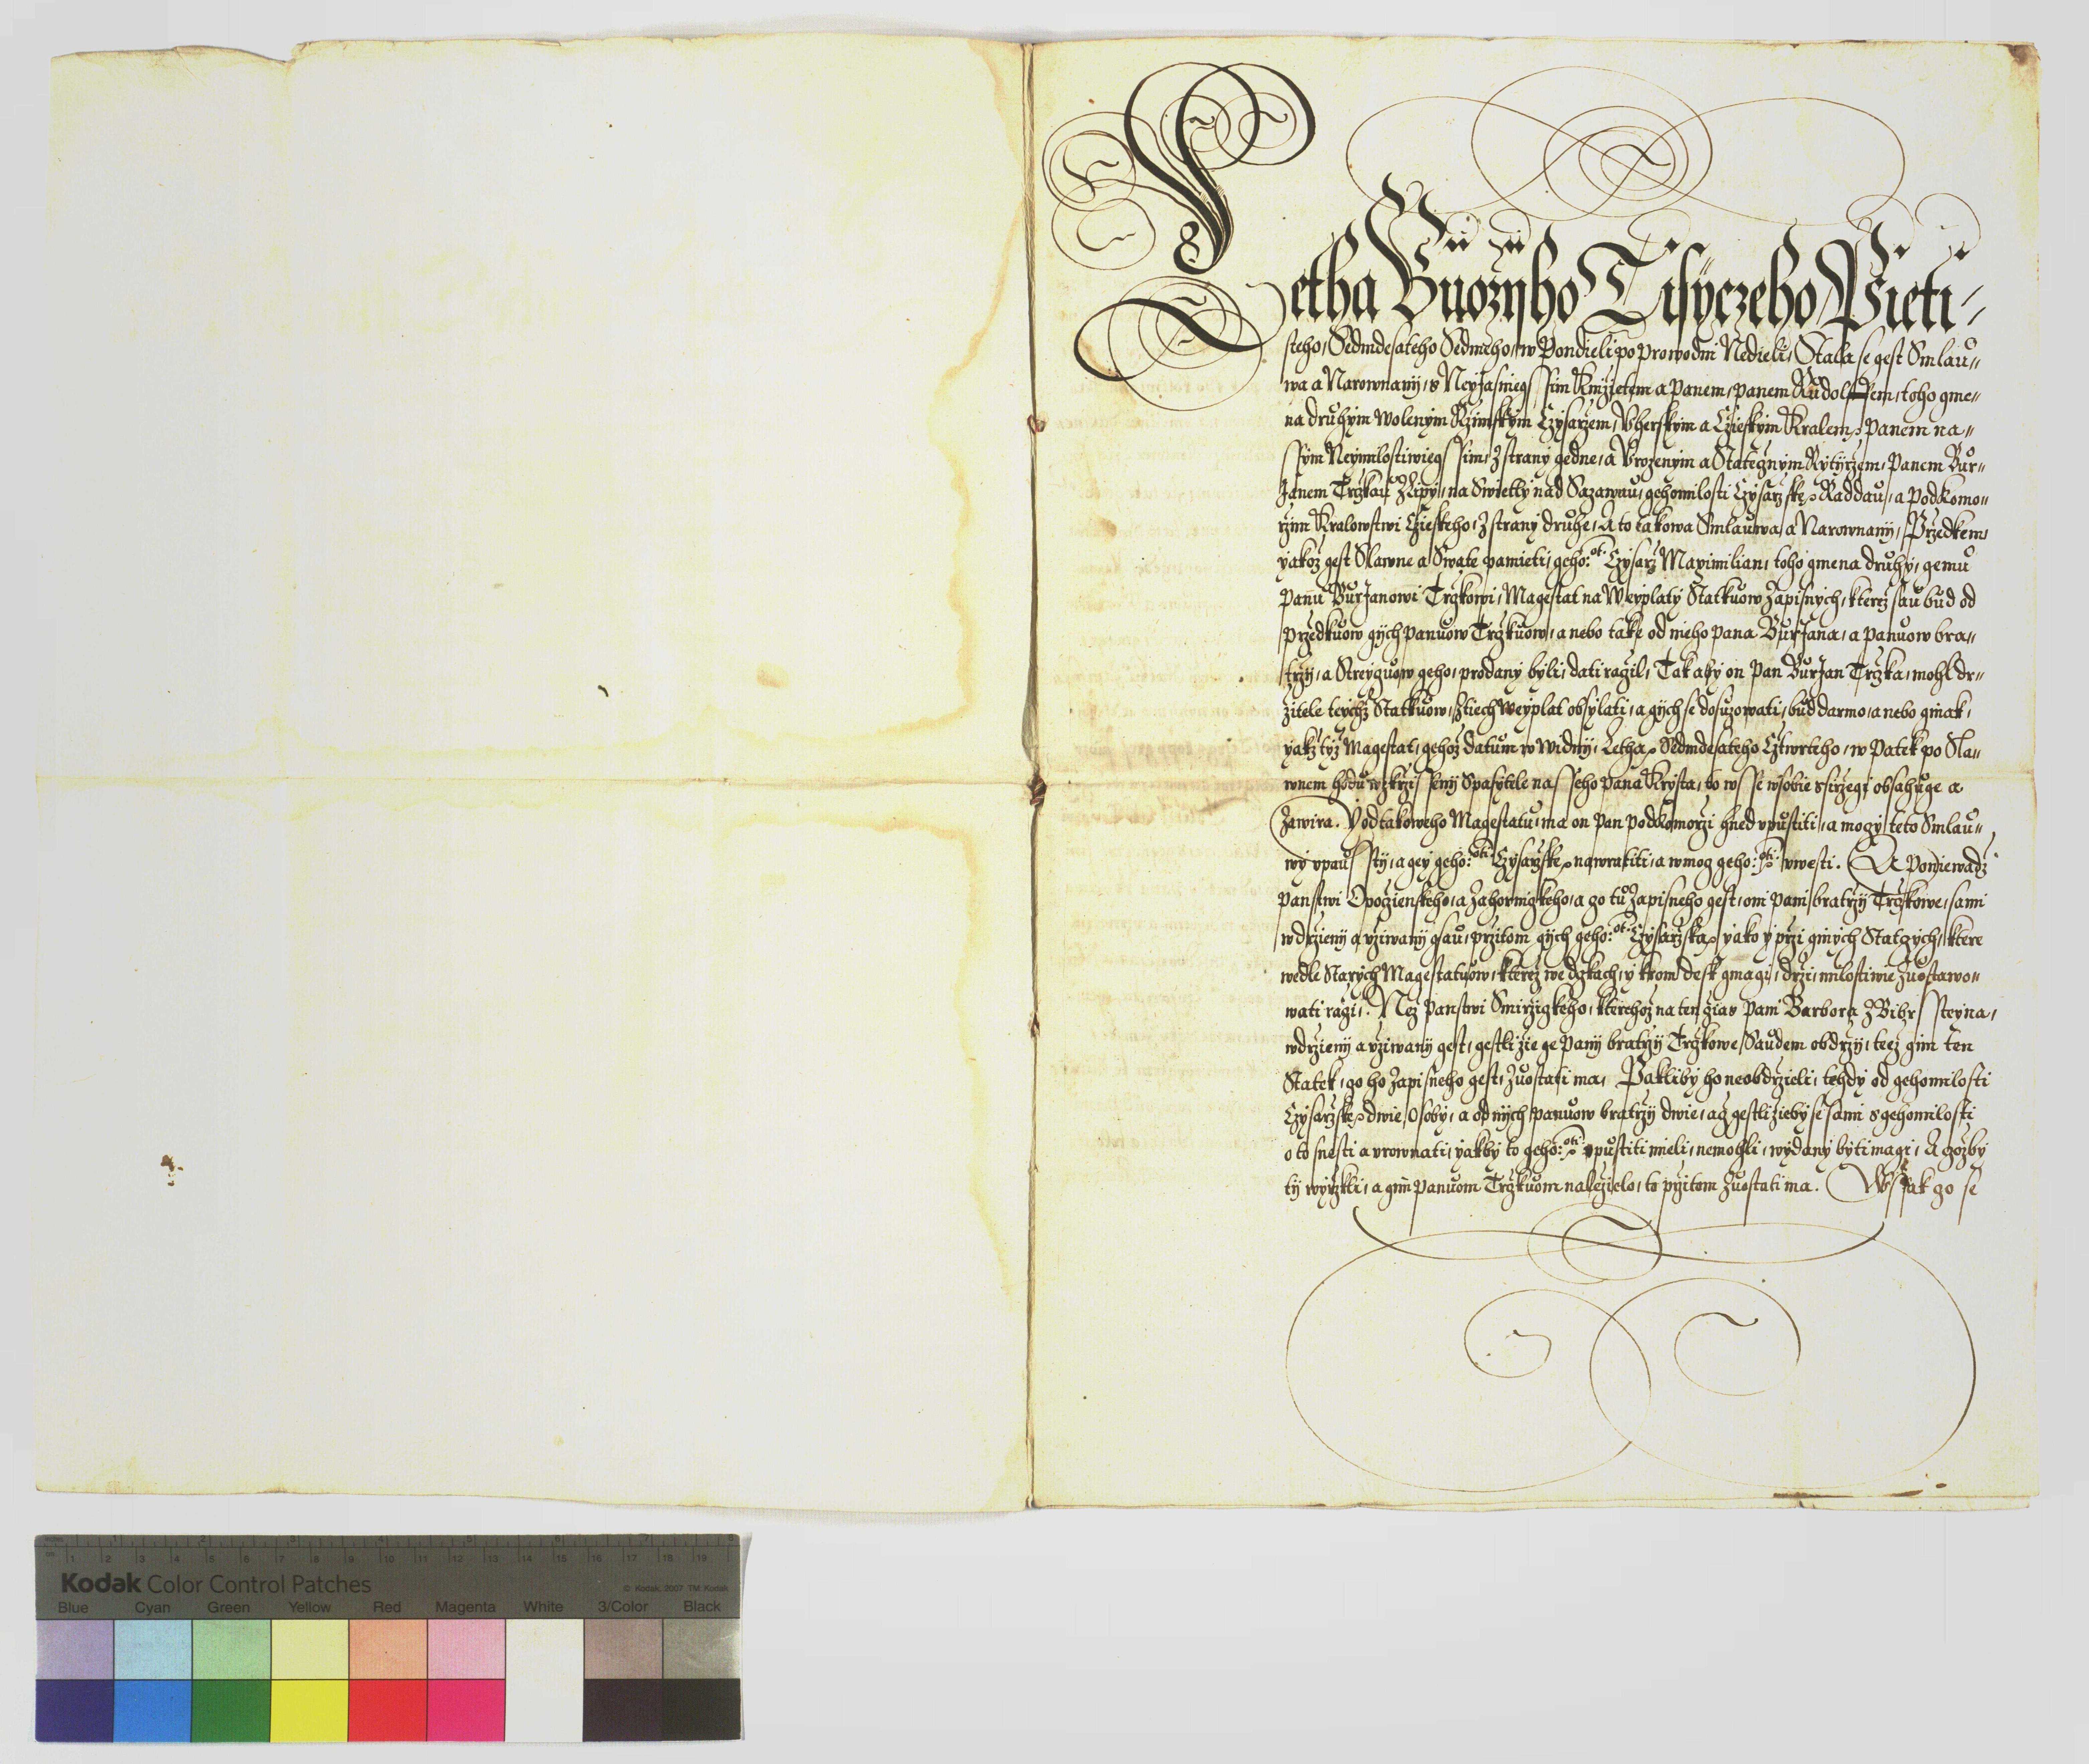 Letha Buozyho Tisyczeho Pieti-
steho, Sedmdesateho Sedmeho, w Pondieli po prowodni Nedieli, Stala se gest Smlau-
wa a Narownany, s Neyjasniegssim Knyzietem a Panem, panem Rudolffem, toho gme-
na druhym wolenym Rzimskym Czysarzem, Vherskym a Czieskym Kralem, Panem na-
ssym Neymilostiwiegssim, z strany gedne, a Vrozenym a Stategnym Rytyrzem, Panem Bur-
Janem Trczkau z Lipy, na Swietly nad Sazawau, gehomilosti Czysarzske Raddau, a Podkomo-
rzim Kralowstwi Czieskeho, z strany druhe, A to takowa Smlauwa a Narownany, Przedkem
yakoz gest Slawne a Swate pamieti, geho: oti Czysarz Maximilian, toho gmena druhy, gemu
Panu BurJanowi Trczkowi, Magestat na Weyplaty Statkuow Zapisnych, kterez sau bud od
przedkuow gych panuow Trczkuow, a nebo take od nieho pana BurJana, a panuow bra-
trzy, a Streyguow geho, prodany byli, dati ragil, Tak aby on Pan BurJan Trczka, mohl dr-
zitele teychz Statkuow, z tiech weyplat obsylati, a gych se dosuzowati, bud darmo, a nebo ginak,
yakz tyz Magestat, gehoz datum w Widny, Letha Sedmdesateho Cztwrteho, w Patek po Sla-
wnem hodu wzkrzissleny Spasytele nasseho pana Krysta, to wsse w sobie ssirzegi obsahuge a
Zawira. Vod takoweho Magestatu, ma on Pan podkomorzi hned vpustiti, a mogy teto Smlau-
wy vpaussty, a gey geho: oti Czysarzske nawratiti, a w mog geho: oti vwesti. A Poniewadz
panstwi Opoczienskeho, a Zahornigkeho, a go tu Zapisneho gest, oni pani bratrzy Trczkowe, sami
w drzieny a vziwany gsau, przitom gych geho: oti Czysarzska, yako y przi ginych Statgych, ktere
wedle Starych Magestatuow, kterez we dczkach, y krom desk gmagi, drzi, milostiwie Zuostawo-
wati ragi. Nez Panstwi Smirzigkeho, kterehoz na ten czias Pani Barbora z Bibrssteyna,
w drzieny a vziwany gest, gestli zie ge Pany bratrzy Trczkowe, Saudem obdrzy, teez gim ten
Statek, go ho Zapisneho gest, Zuostati ma, Pakliby ho neobdrzieli, tehdy od gehomilosti
Czysarzske dwie Osoby, a od nych panuow bratrzy dwie, acz gestli zieby se sami s gehomilosti
o to snesti a wrownati, yakby to geho: oti vpustiti mieli, nemohli, wydany byti magi, A gozby
ty wyrzkli, a gim panuom Trczkuom nalezielo, to przitom Zuostati ma. Wssak go se
Kodak Color Control Patches
© Kodak, 2007 TM: Kodak
Blue Cyan Green Yellow Red Magenta White 3/Color Black